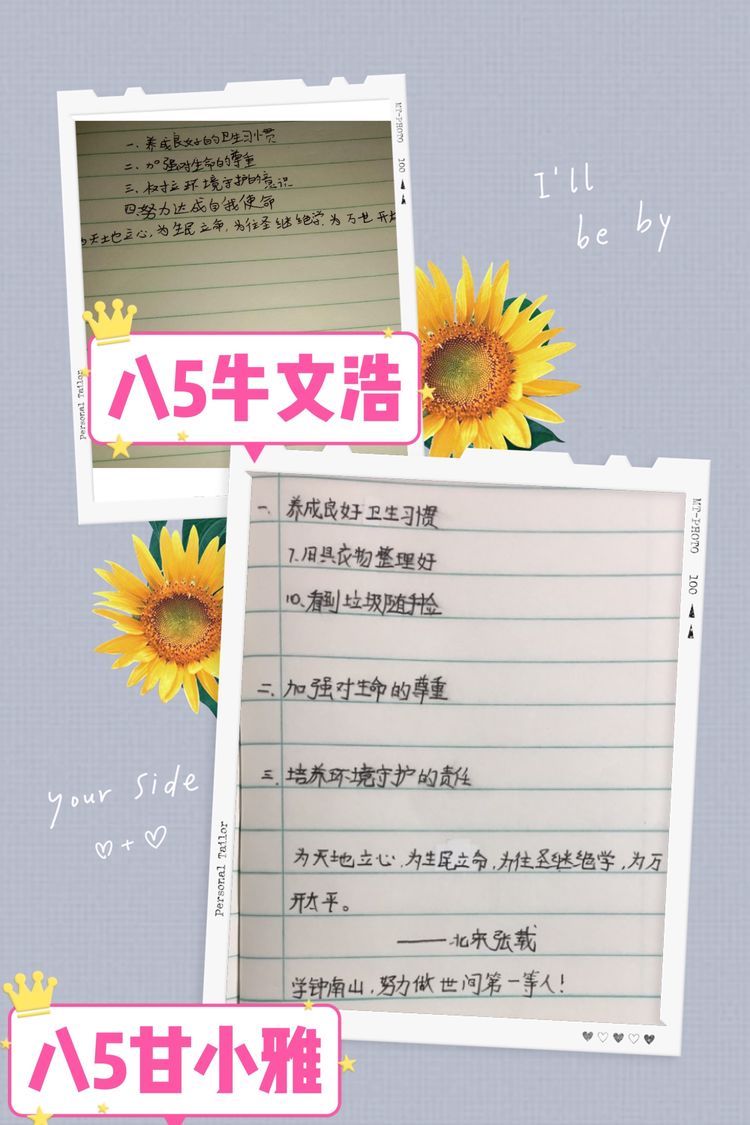 MT-PHOTO 100
一. 养成良好的卫生习惯
二. 加强对生命的尊重
三. 树立环境守护的意识
四.努力达成自我使命
为天地立心,为生民立命,为往圣继绝学,为万世开
Personal Tailor
I'll
be by
八5牛文浩
MT-PHOTO 100
一. 养成良好卫生习惯
7.用具衣物整理好
10.看到垃圾随手捡
二. 加强对生命的尊重
三. 培养环境守护的责任
为天地立心,为生民立命,为往圣继绝学,为万
开太平。
——北宋张载
学钟南山,努力做世间第一等人!
your side
♡+♡
Personal Tailor
八5甘小雅